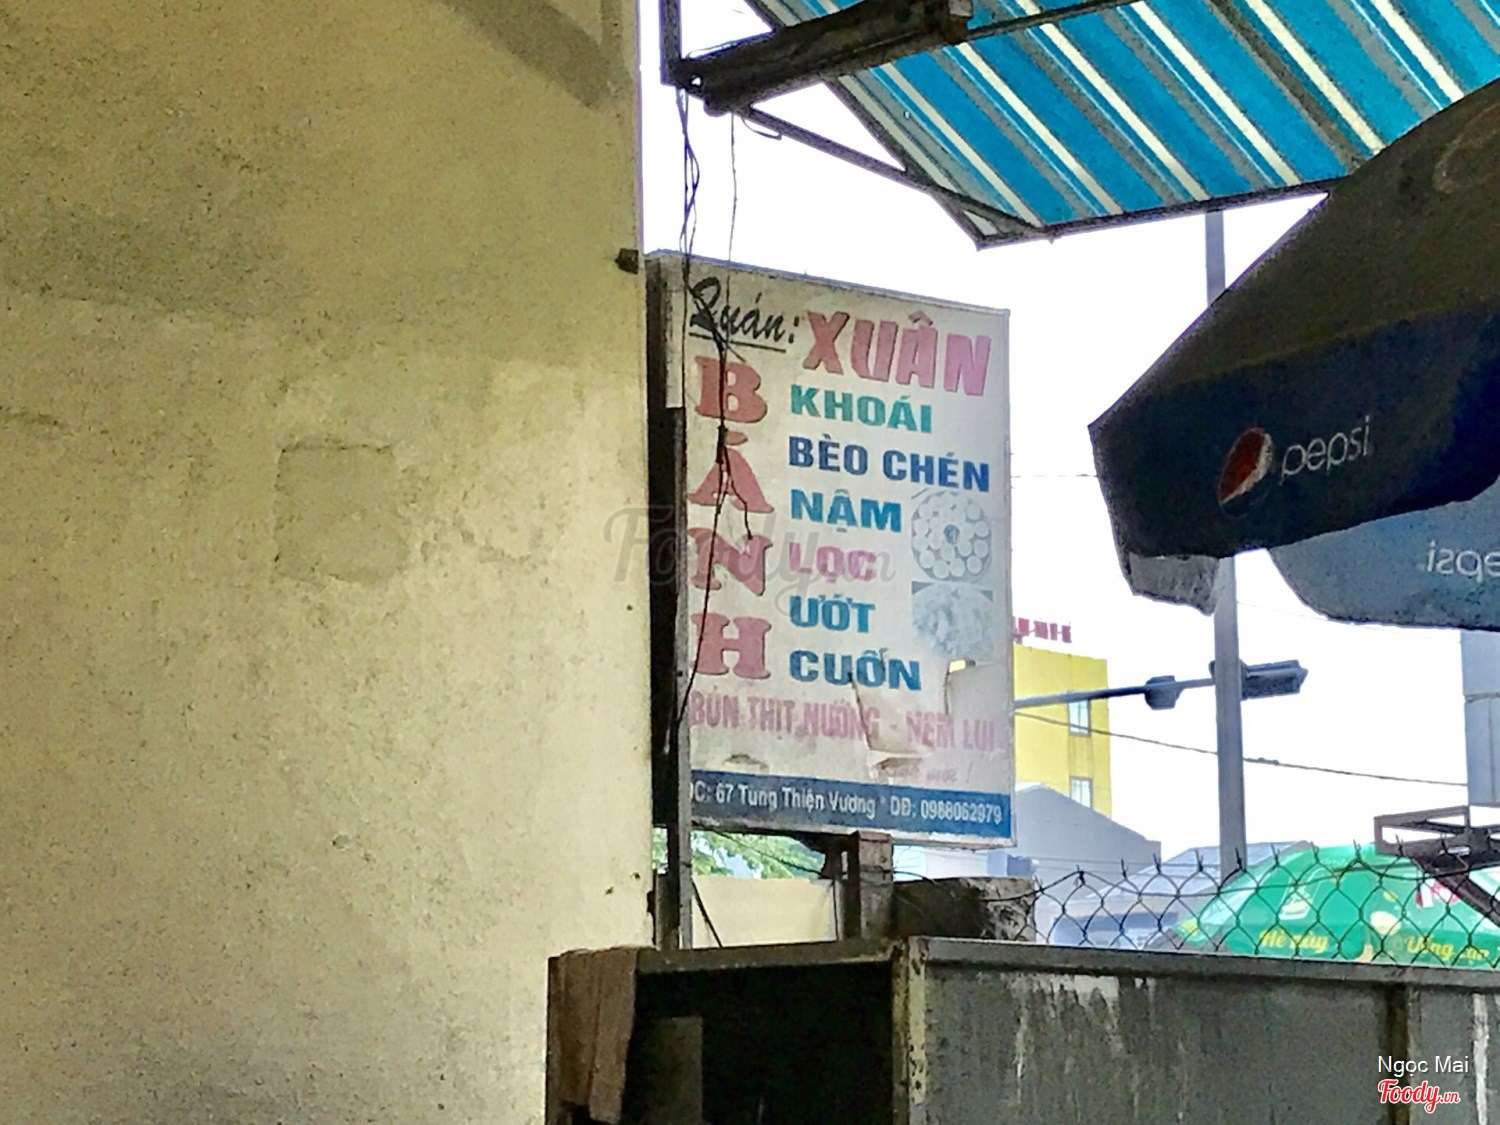 Quán: XUÂN
BÁNH
KHOÁI
BÈO CHÉN
NẬM
LỌC
ƯỚT
CUỐN
BÚN THỊT NƯỚNG - NEM LỤI
ĐC: 67 Tùng Thiện Vương * DĐ: 0988062979
pepsi
pepsi
Foody.vn
Hè này
Uống
Ngọc Mai
Foody.vn